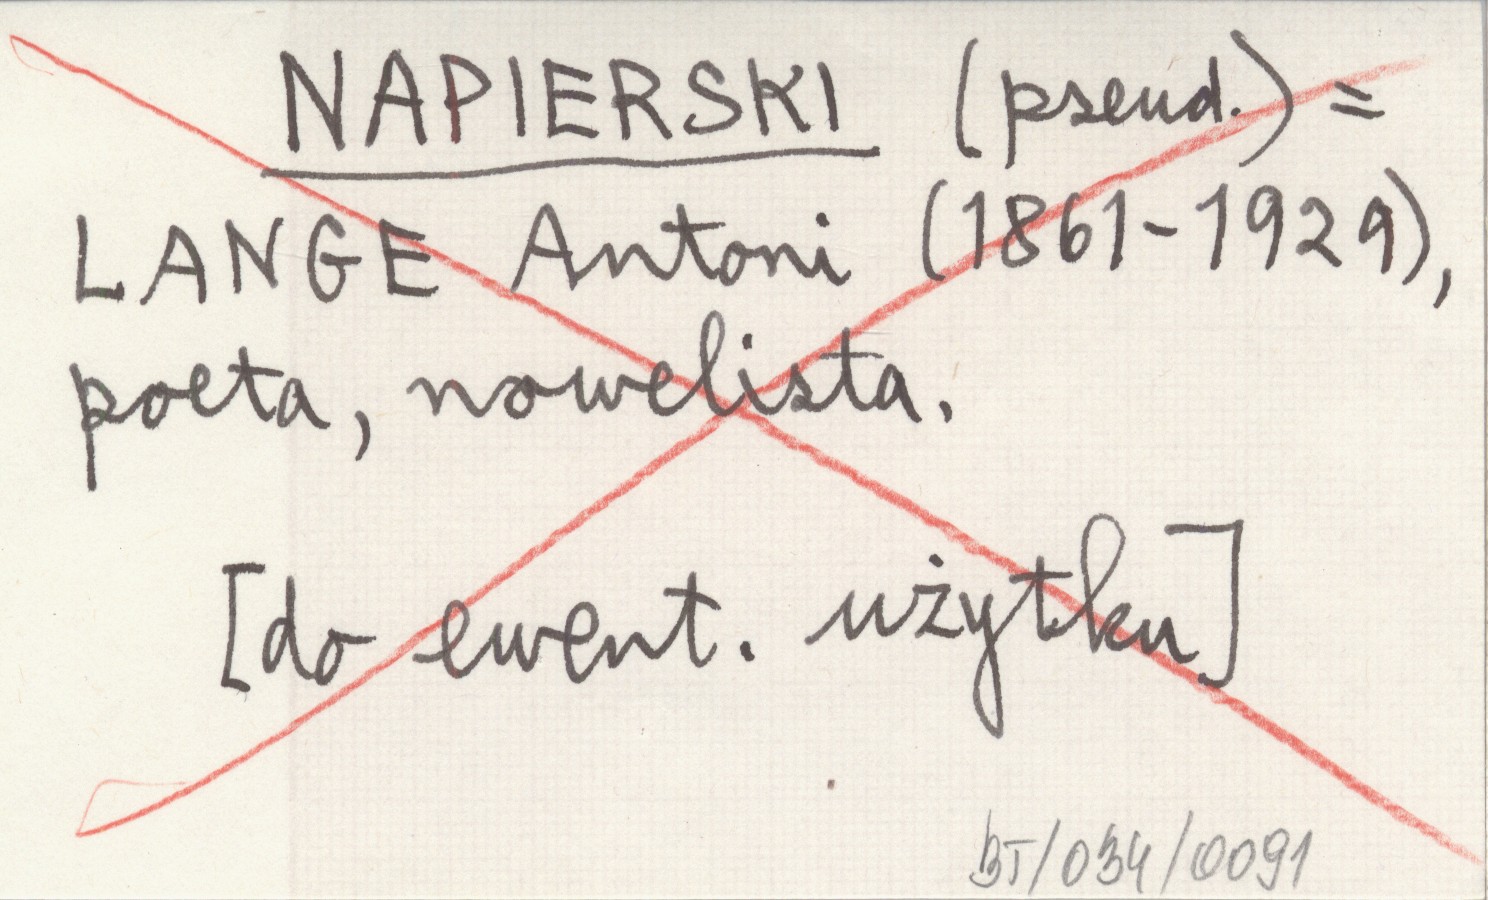 NAPIERSKI (pseud.) =
LANGE Antoni (1861-1929),
poeta, nowelista.
[do ewent. użytku]
BT/034/0091